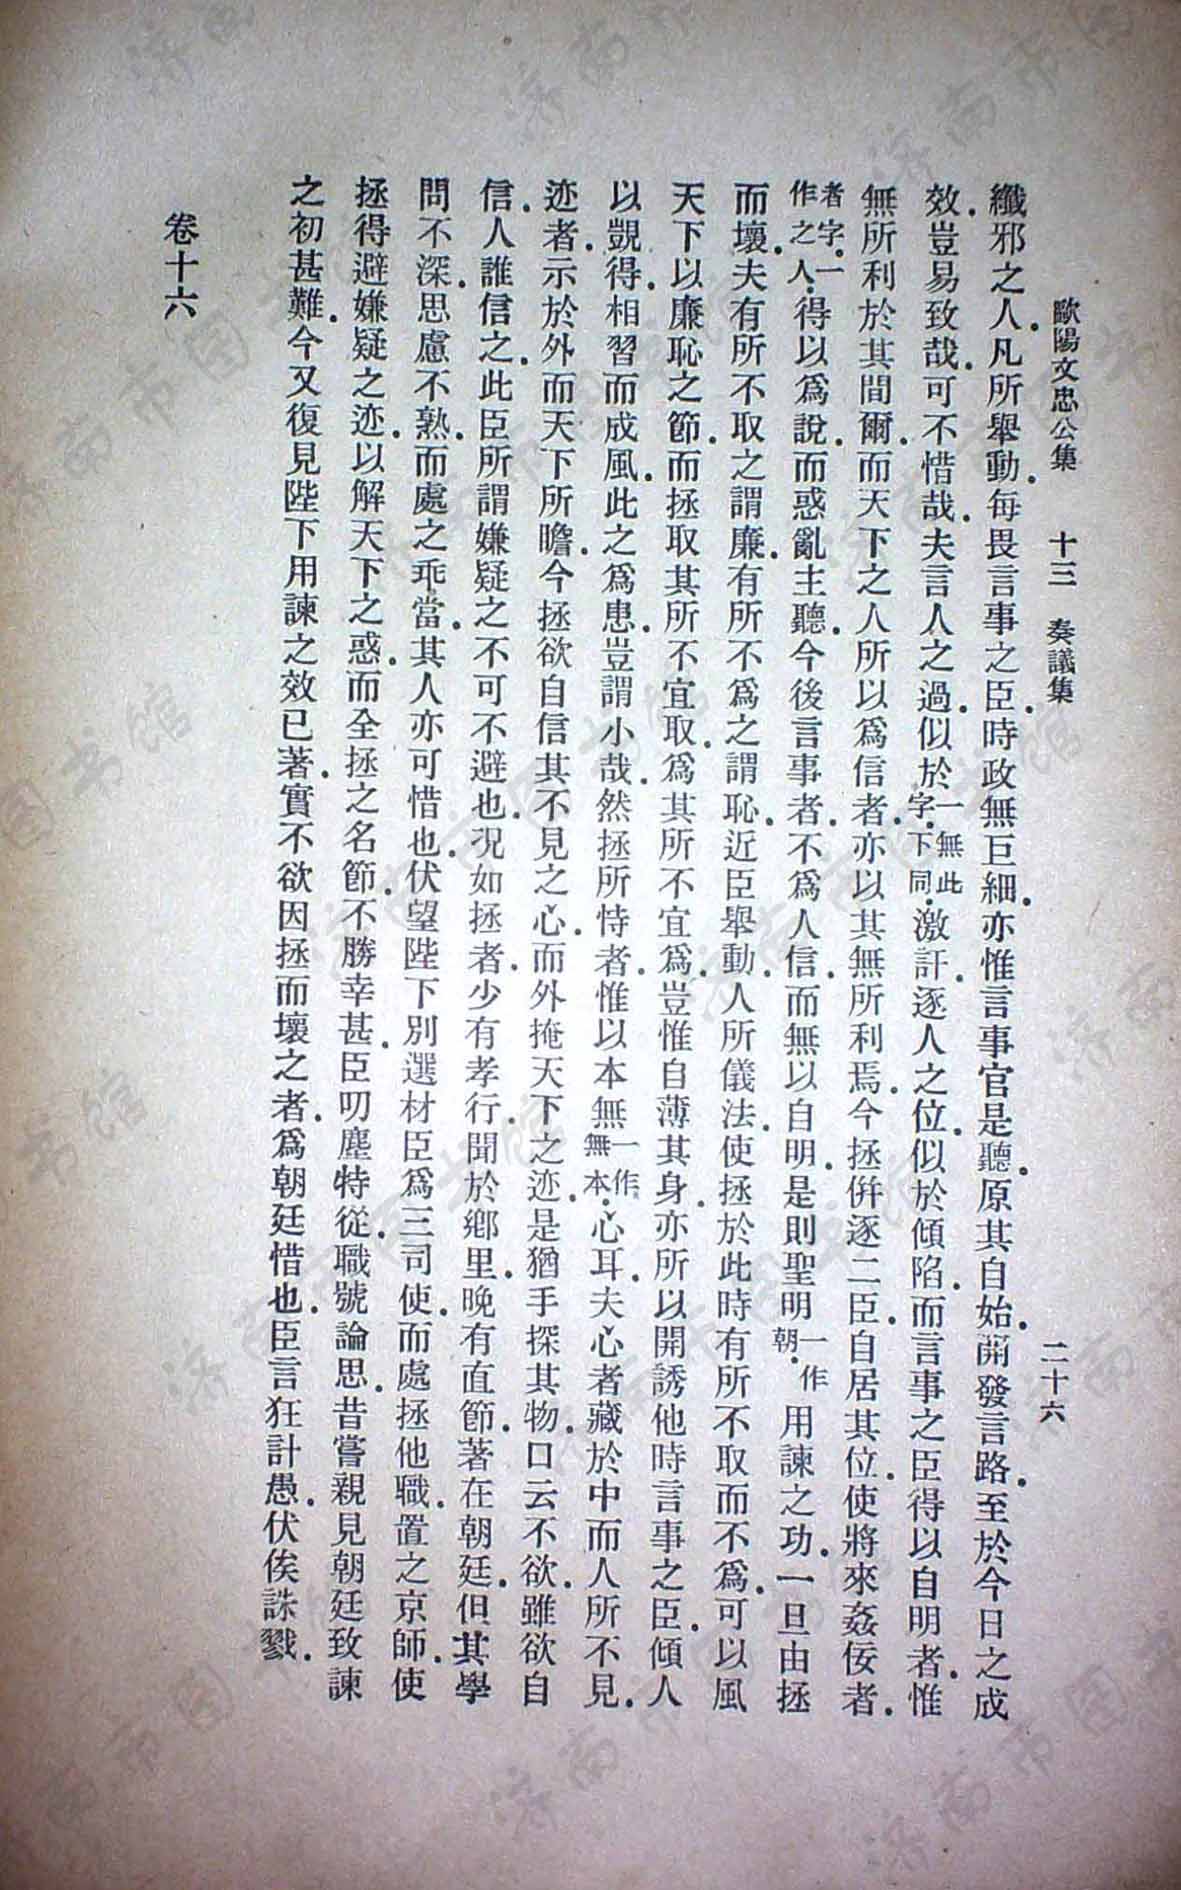 歐陽文忠公集 十三 奏議集 二十六
纖邪之人.凡所舉動.每畏言事之臣.時政無巨細.亦惟言事官是聽.原其自始.開發言路.至於今日之成
效.豈易致哉.可不惜哉.夫言人之過.似於一無此字.下同.激訐.逐人之位.似於傾陷.而言事之臣得以自明者.惟
無所利於其間爾.而天下之人所以爲信者.亦以其無所利焉.今拯併逐二臣.自居其位.使將來姦佞者.
者字.一作之人.得以爲說.而惑亂主聽.今後言事者.不爲人信.而無以自明.是則聖明一作朝.用諫之功.一旦由拯
而壞.夫有所不取之謂廉.有所不爲之謂恥.近臣舉動.人所儀法.使拯於此時有所不取而不爲.可以風
天下以廉恥之節.而拯取其所不宜取.爲其所不宜爲.豈惟自薄其身.亦所以開誘他時言事之臣.傾人
以覬得.相習而成風.此之爲患.豈謂小哉.然拯所恃者.惟以本無一作無本.心耳.夫心者藏於中而人所不見.
迹者.示於外而天下所瞻.今拯欲自信其不見之心.而外掩天下之迹.是猶手探其物.口云不欲.雖欲自
信.人誰信之.此臣所謂嫌疑之不可不避也.況如拯者.少有孝行.聞於鄉里.晚有直節.著在朝廷.但其學
問不深.思慮不熟.而處之乖當.其人亦可惜也.伏望陛下別選材臣爲三司使.而處拯他職.置之京師.使
拯得避嫌疑之迹.以解天下之惑.而全拯之名節.不勝幸甚.臣叨塵特從.職號論思.昔嘗親見朝廷致諫
之初甚難.今又復見陛下用諫之效已著.實不欲因拯而壞之者.爲朝廷惜也.臣言狂計愚.伏俟誅戮.
卷十六
济南市图书馆